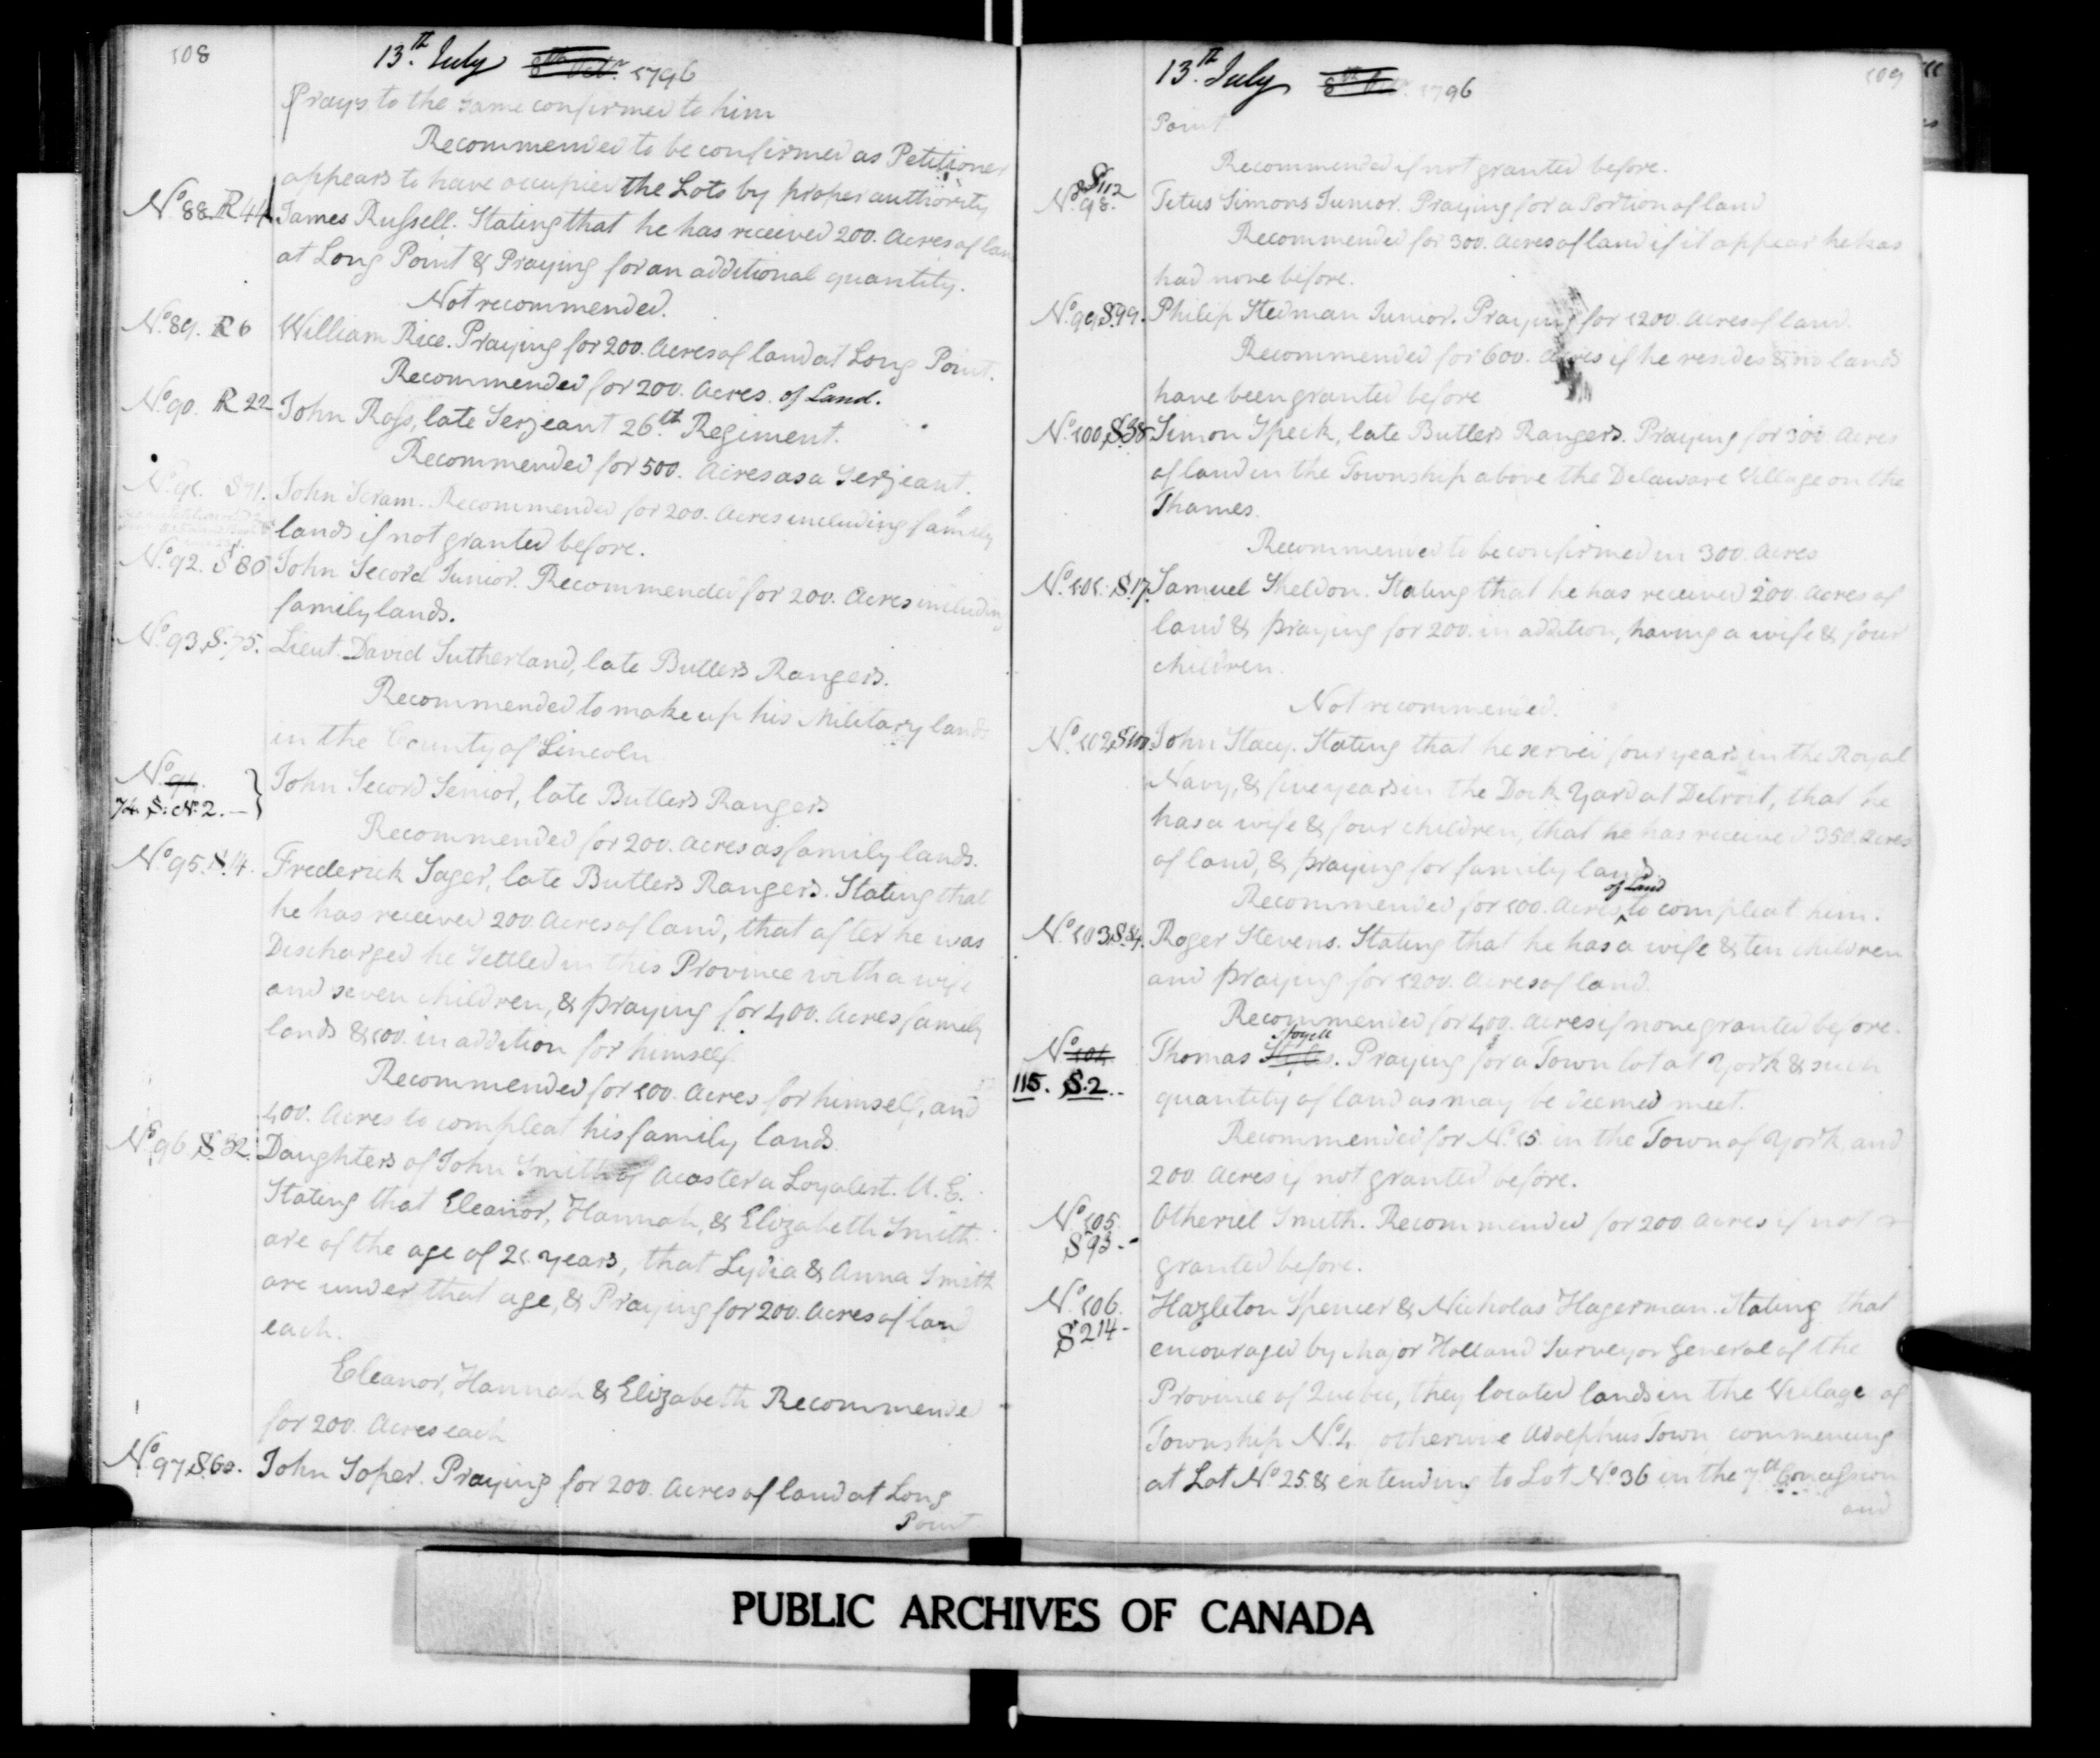 108
13.th July 8th Octr. 1796
Prays to the same confirmed to him
Recommended to be confirmed as Petitioner
appears to have occupied the Lots by proper authority
No. 88. R 44 James Russell. Stating that he has received 200. Acres of land
at Long Point & Praying for an additional quantity.
Not recommended.
No. 89. R 6 William Rice. Praying for 200. Acres of land at Long Point.
Recommended for 200. Acres. of Land.
No. 90. R 22 John Ross, late Serjeant 26.th Regiment.
Recommended for 500. Acres as a Serjeant.
No. 91. S 71. John Scram. Recommended for 200. Acres including family
lands if not granted before.
No. 92. S 80 John Secord Junior. Recommended for 200. Acres including
family lands.
No. 93. S. 75. Lieut. David Sutherland, late Butlers Rangers.
Recommended to make up his Military lands
in the County of Lincoln
No. 94. John Secord Senior, late Butlers Rangers
74. S: No. 2. —
Recommended for 200. Acres as family lands.
No. 95. S. 14. Frederick Sager, late Butlers Rangers. Stating that
he has received 200 Acres of land, that after he was
Discharged he Settled in this Province with a wife
and seven children, & praying for 400. Acres family
lands & 100. in addition for himself
Recommended for 100. Acres for himself, and
400. Acres to compleat his family lands.
No. 96. S. 32. Daughters of John Smith of Acaster a Loyalist. U.E.
Stating that Eleanor, Hannah, & Elizabeth Smith
are of the age of 21. years, that Lydia & Anna Smith
are under that age, & Praying for 200. Acres of land
each.
Eleanor, Hannah & Elizabeth Recommended
for 200. Acres each
No. 97. S 60. John Soper. Praying for 200. Acres of land at Long
Point
109
13.th July 8th 1796
Point
Recommended if not granted before.
S 112
No. 98. Titus Simons Junior. Praying for a Portion of land
Recommended for 300. Acres of land if it appear he has
had none before.
No. 99 S 99. Philip Stedman Junior. Praying for 1200. Acres of land.
Recommended for 600. Acres if he resides & no lands
have been granted before
No. 100, S 38 Simon Speck, late Butlers Rangers. Praying for 300. Acres
of land in the Township above the Delaware Village on the
Thames.
Recommended to be confirmed in 300. Acres
No. 101. S. 17. Samuel Sheldon. Stating that he has received 200. Acres of
land & praying for 200. in addition, having a wife & four
children.
Not recommended.
No. 102, S John Stacy. Stating that he served four years in the Royal
Navy, & five years in the Dock Yard at Detroit, that he
has a wife & four children, that he has received 350. Acres
of land, & praying for family lands.
of Land
Recommended for 100. Acres, to compleat him.
No. 103, S. 84. Roger Stevens. Stating that he has a wife & ten children
and praying for 1200. Acres of land.
Recommended for 400. Acres if none granted before.
Stoyell
No. 104 Thomas . Praying for a Town lot at York & such
115. S. 2..
quantity of land as may be deemed meet.
Recommended for No. 15 in the Town of York, and
200 Acres if not granted before.
No. 105. Otheriel Smith. Recommended for 200 Acres if not
S 93.-
granted before.
No. 106. Hazleton Spencer & Nicholas Hagerman. Stating that
S 214-
encouraged by Major Holland Surveyor General of the
Province of Quebec, they located lands in the Village of
Township No. 4. otherwise Adolphus Town, commencing
at Lot No. 25. & extending to Lot No. 36 in the 7th Concession
and
PUBLIC ARCHIVES OF CANADA